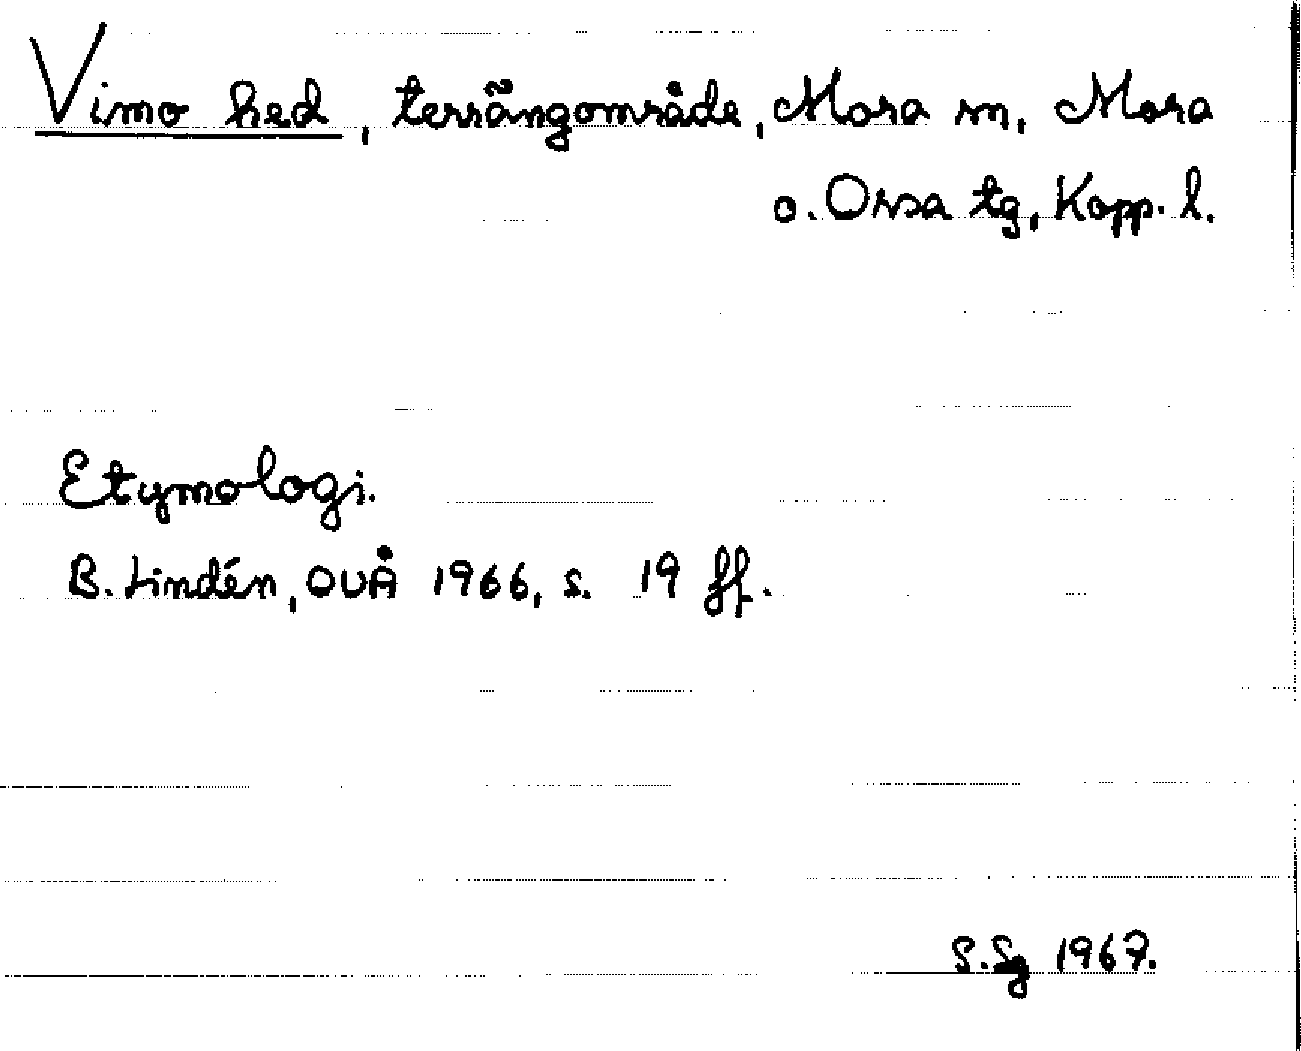 Vimo hed, terrängområde, Mora sn, Mora
o. Orsa tg, Kopp. l.
Etymologi.
B. Lindén, OUÅ 1966, s. 19 ff.
S.Sg 1967.